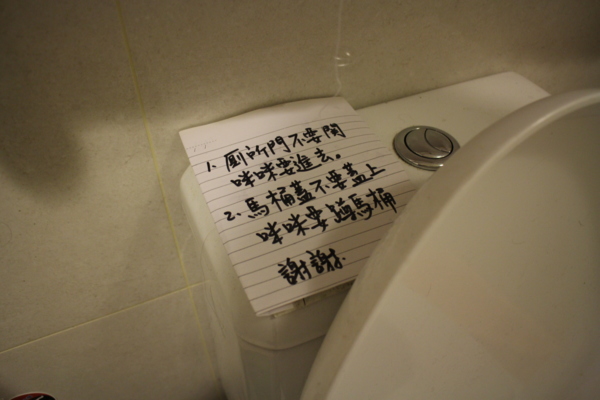 1. 廁所門不要関
咪咪要進去。
2. 馬桶蓋不要蓋上
咪咪要蹲馬桶
謝謝.